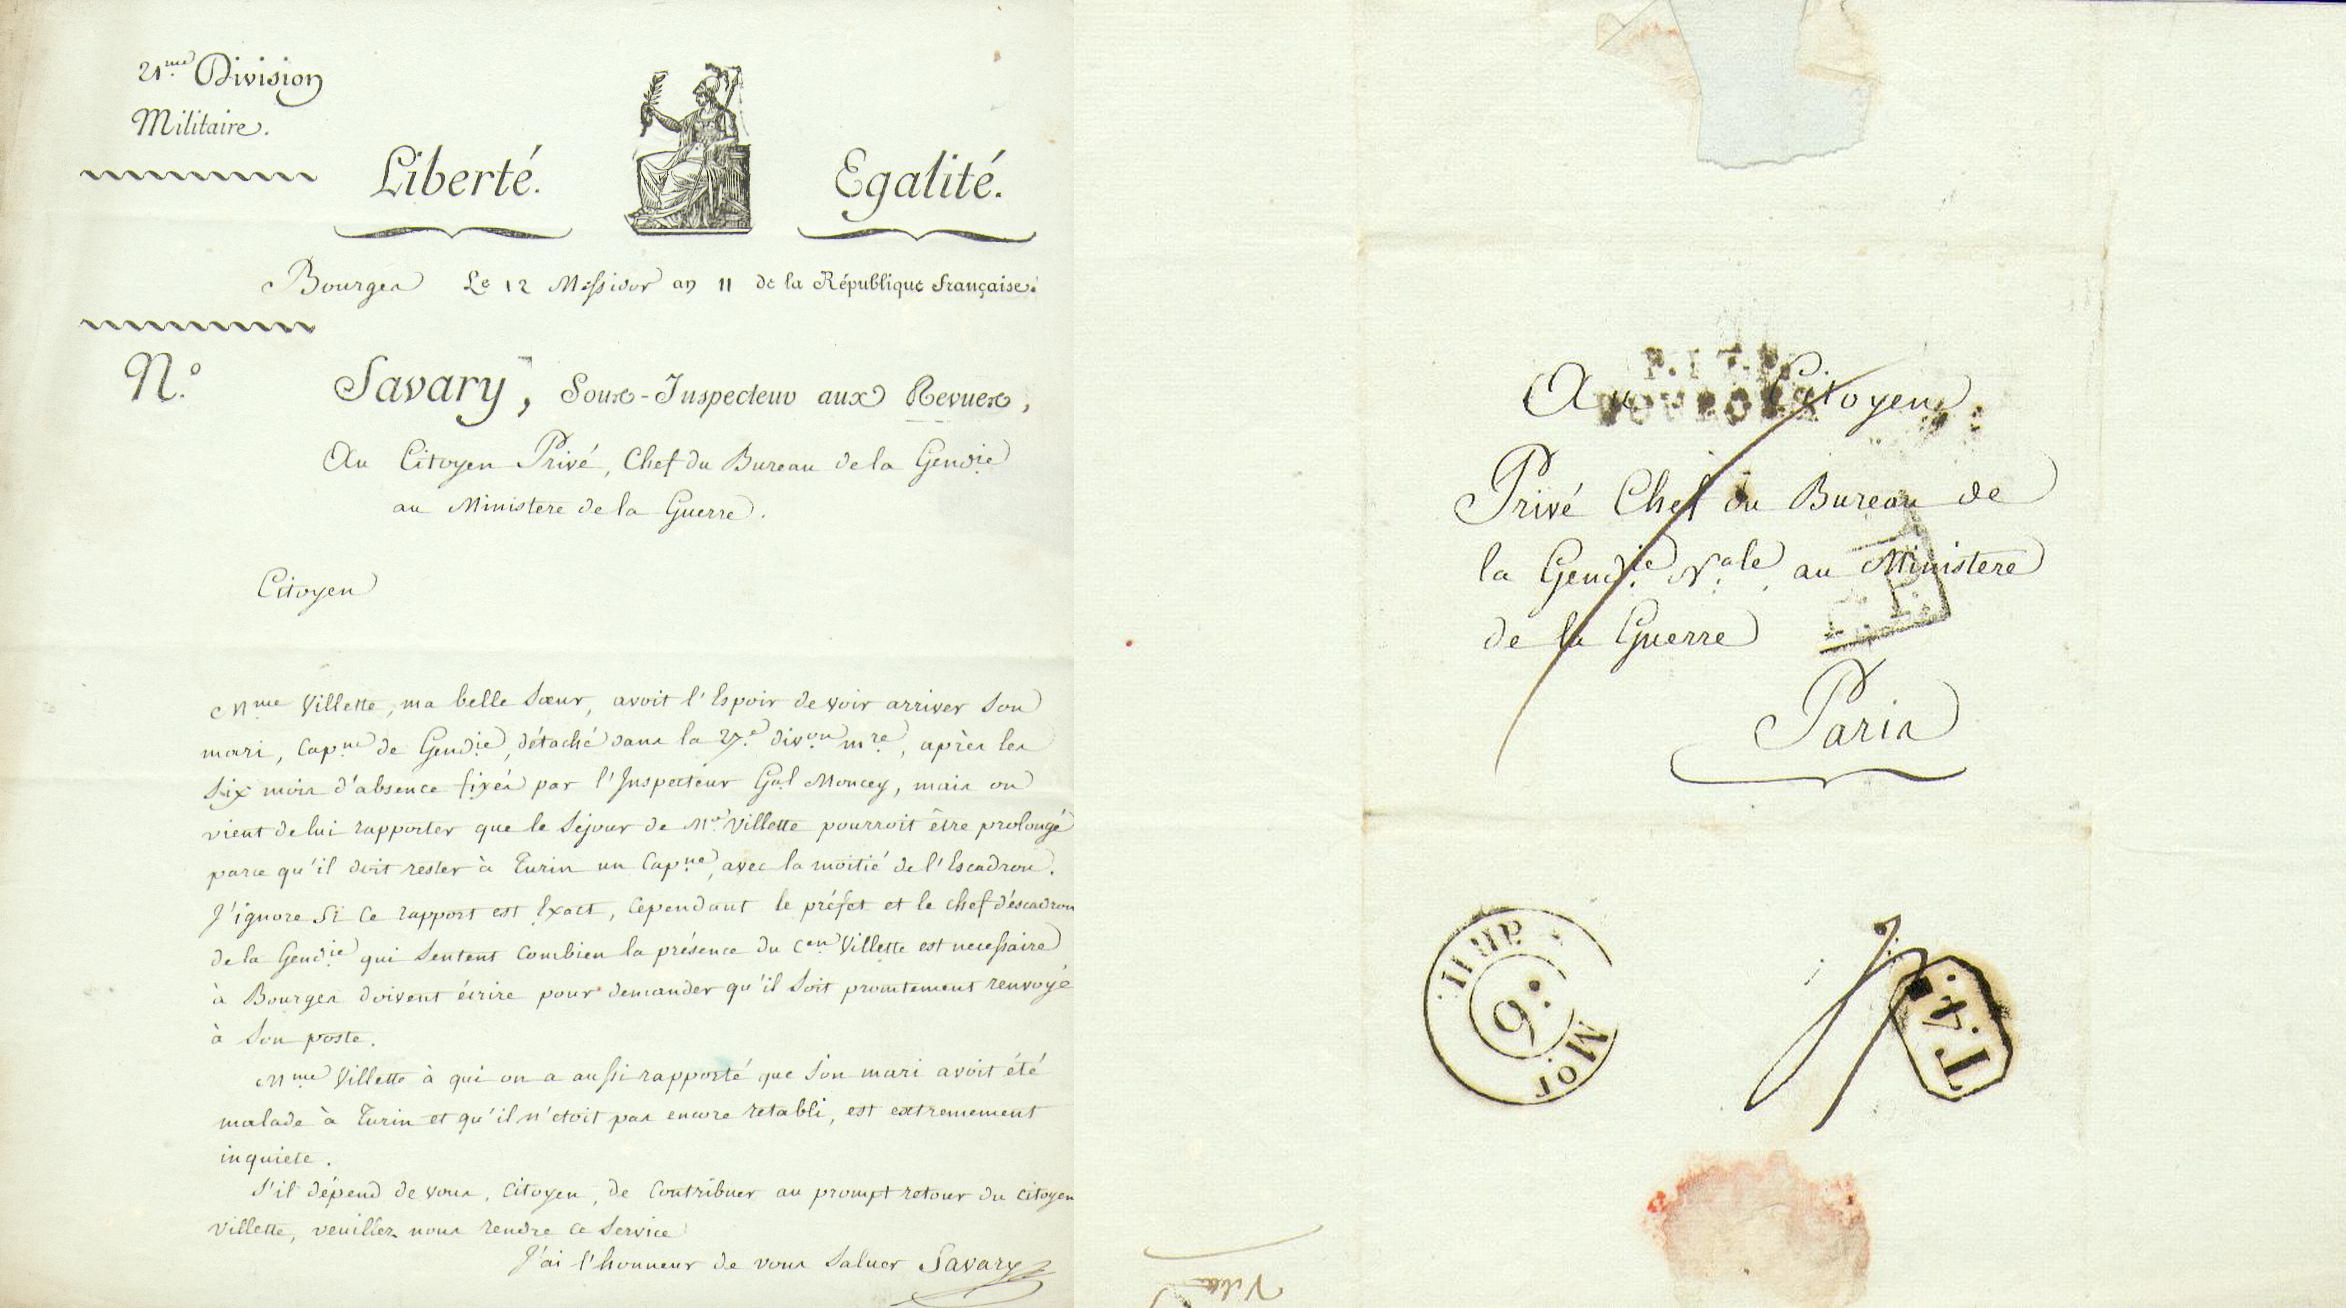 21.me Division
Militaire.
Liberté.
Egalité.
Bourges Le 12 Messidor an 11 de la République française.
N.o
Savary, Sous-Inspecteur aux Revues,
Au Citoyen Privé, Chef du Bureau de la Gend.ie
au Ministere de la Guerre.
Citoyen
Mme Villette, ma belle Sœur, avoit l'Espoir de voir arriver Son
mari, Cap.ne de Gend.ie, détaché dans la 27.e div.on m.re, après les
Six mois d'absence fixés par l'Inspecteur G.al Moncey, mais on
vient de lui rapporter que le Séjour de M.r Villette pourroit être prolongé
parce qu'il doit rester à Turin un Cap.ne, avec la moitié de l'Escadron.
J'ignore Si Ce rapport est Exact, Cependant le préfet et le chef d'éscadron
de la Gend.ie qui Sentent Combien la présence du C.en Villette est necessaire
à Bourges doivent écrire pour demander qu'il Soit promtement renvoyé
à Son poste.
Mme Villette à qui on a aussi rapporté que Son mari avoit été
malade à Turin et qu'il n'étoit pas encore retabli, est extremement
inquiete.
S'il dépend de vous, Citoyen, de Contribuer au prompt retour du Citoyen
Villette, veuillez nous rendre Ce Service
J'ai l'honneur de vous Saluer Savary
P.17.P.
BOURGES
Au Citoyen
Privé Chef du Bureau de
la Gend.ie N.ale au Ministere
de la Guerre
P.P.
Paris
6
MOI
L.4.